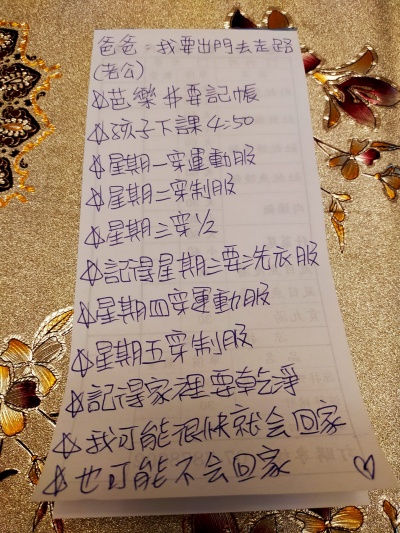 爸爸：我要出門去走路
(老公)
☆芭樂#要記帳
☆孩子下課4:50
☆星期一穿運動服
☆星期二穿制服
☆星期三穿1/2
☆記得星期三要洗衣服
☆星期四穿運動服
☆星期五穿制服
☆記得家裡要乾淨
☆我可能很快就会回家
☆也可能不会回家 ♡